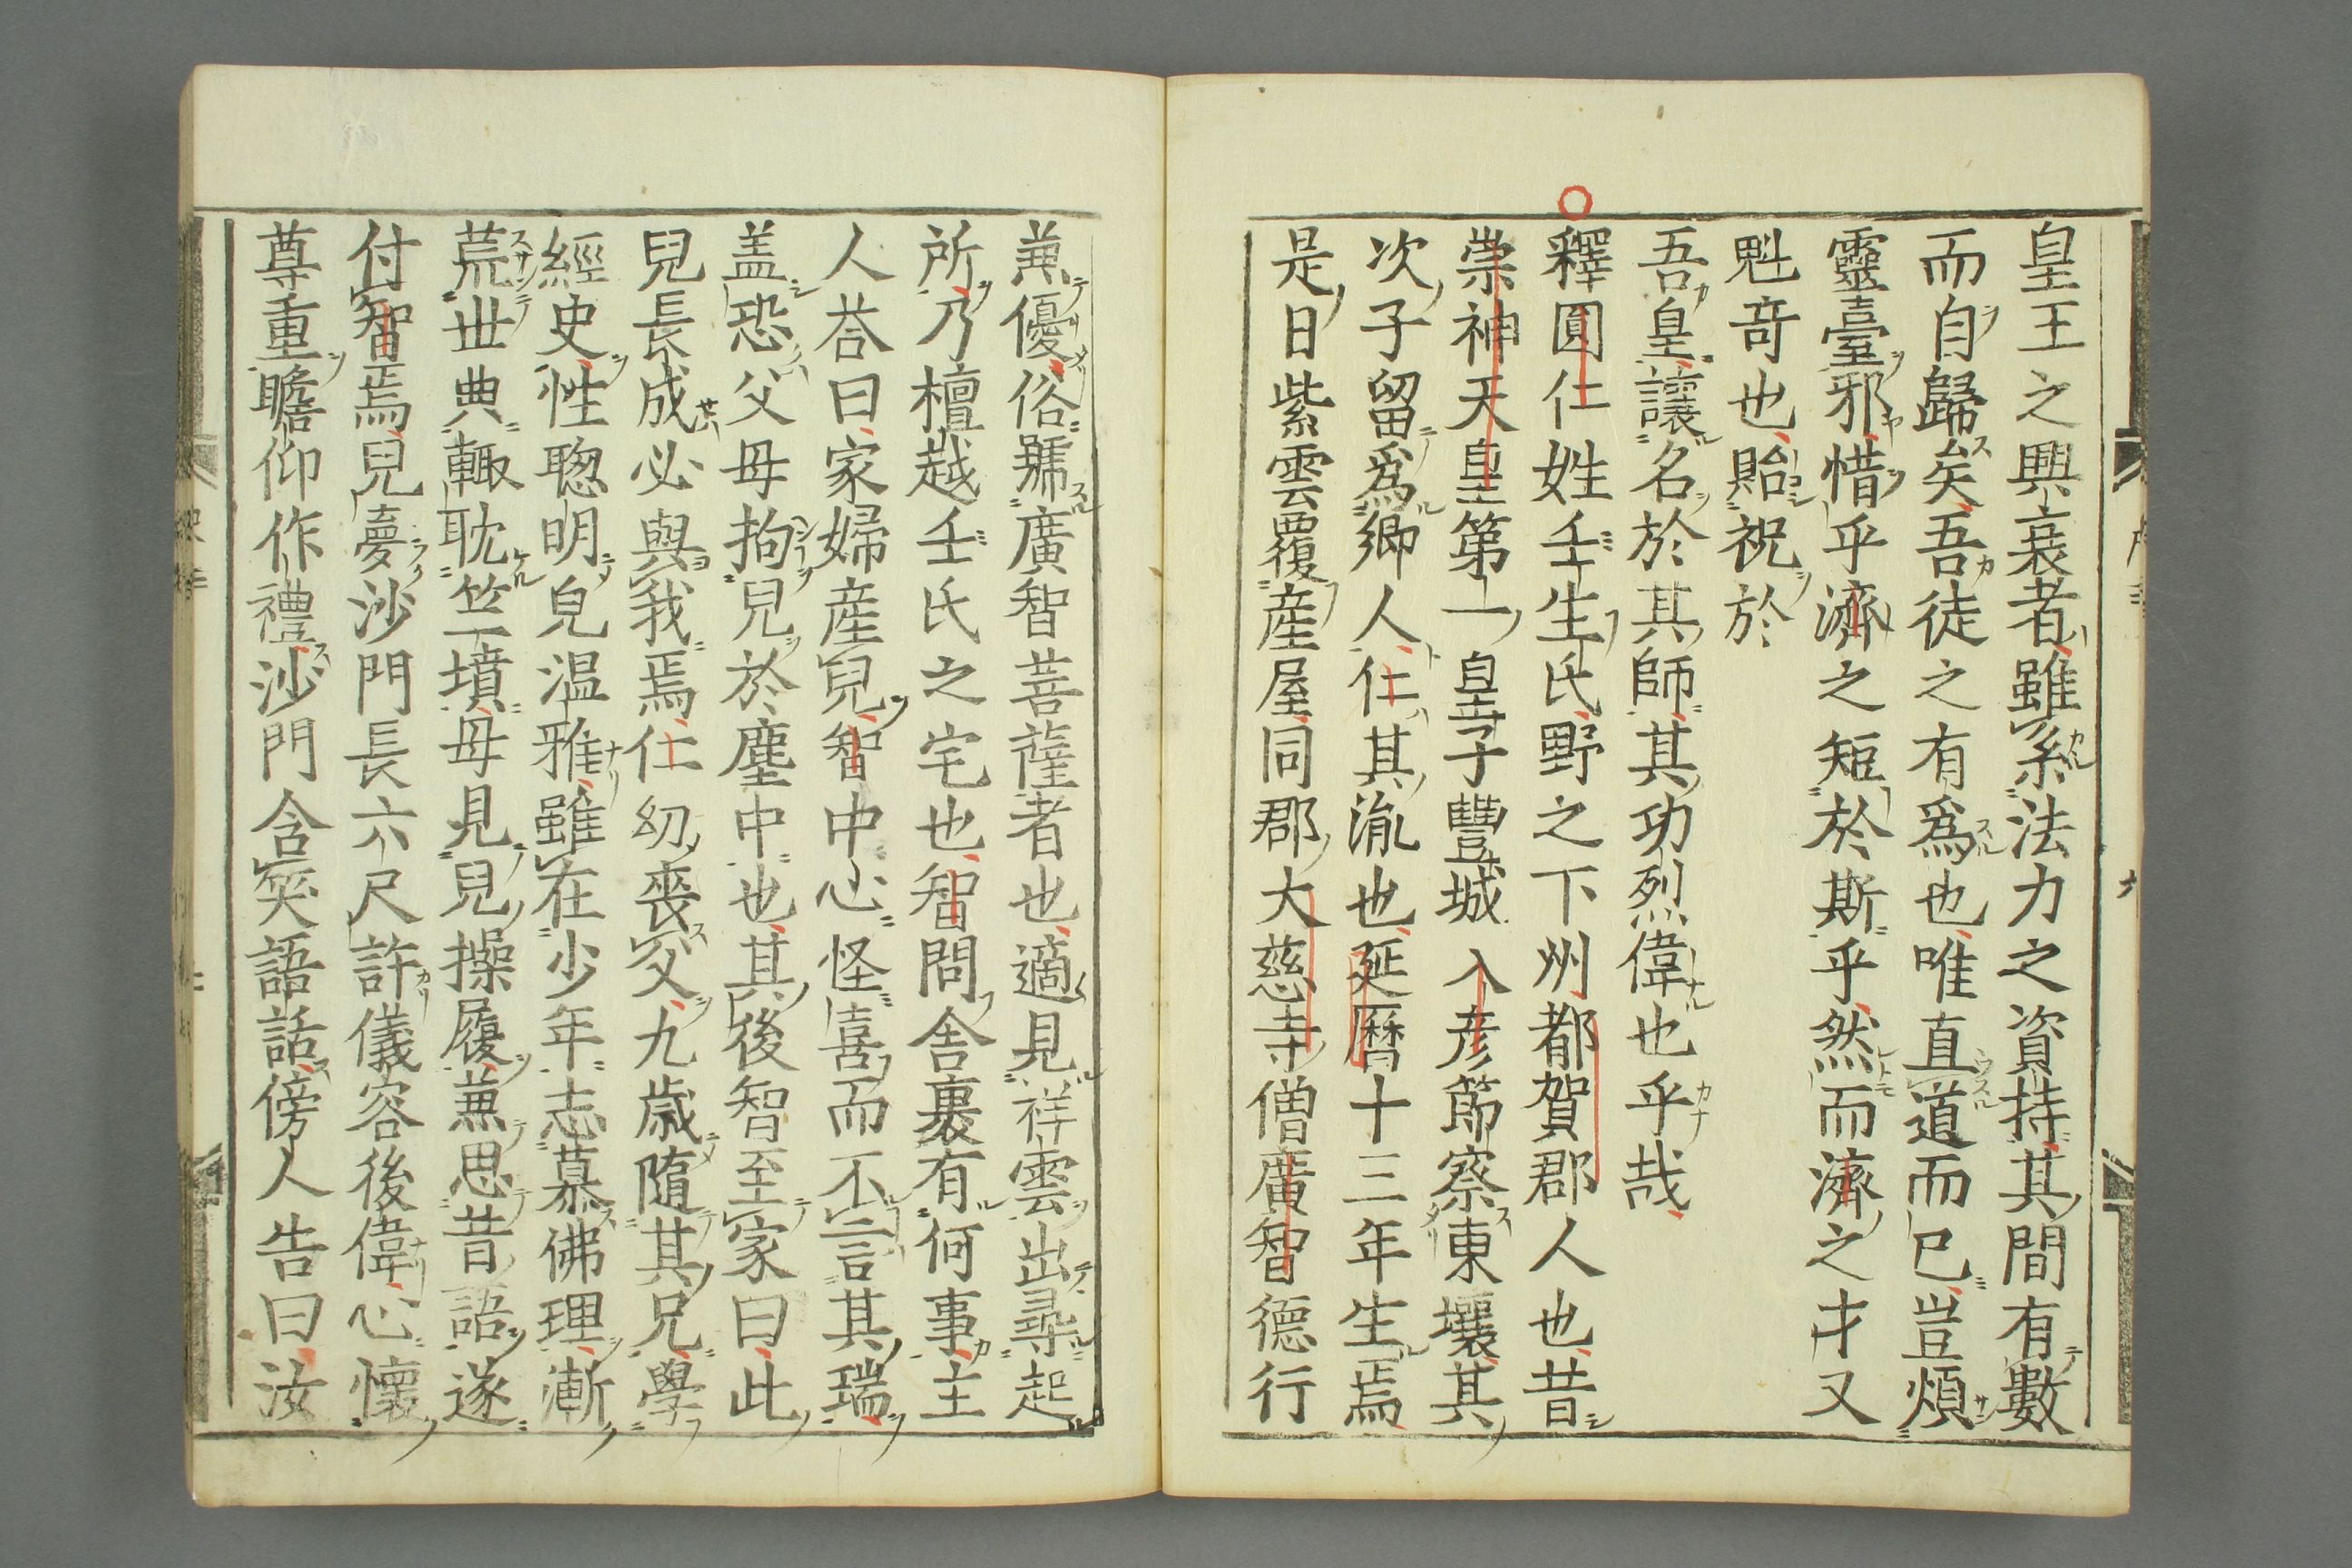 皇王之興衰者雖系法力之資持其間有數
而自歸矣吾徒之有爲也唯直道而已豈煩
靈臺邪惜乎濟之短於斯乎然而濟之才又
魁竒也貽祝於
吾皇讓名於其師其功烈偉也乎哉
釋圓仁姓壬生氏野之下州都賀郡人也昔
崇神天皇第一皇子豐城入彦節察東壤其
次子留爲郷人仁其胤也延曆十三年生焉
是日紫雲覆産屋同郡大慈寺僧廣智德行
兼優俗號廣智菩薩者也適見祥雲出尋起
所乃檀越壬氏之宅也智問舎裏有何事主
人荅曰家婦産兒智中心怪喜而不言其瑞
盖恐父母拘兒於塵中也其後智至家曰此
兒長成必與我焉仁幼喪父九歳隨其兄學
經史性聦明皃温雅雖在少年志慕佛理漸
荒世典輙耽竺墳母見兒操履兼思昔語遂
付智焉兒夢沙門長六尺許儀容後偉心懷
尊重瞻仰作禮沙門含笑語話傍人告曰汝